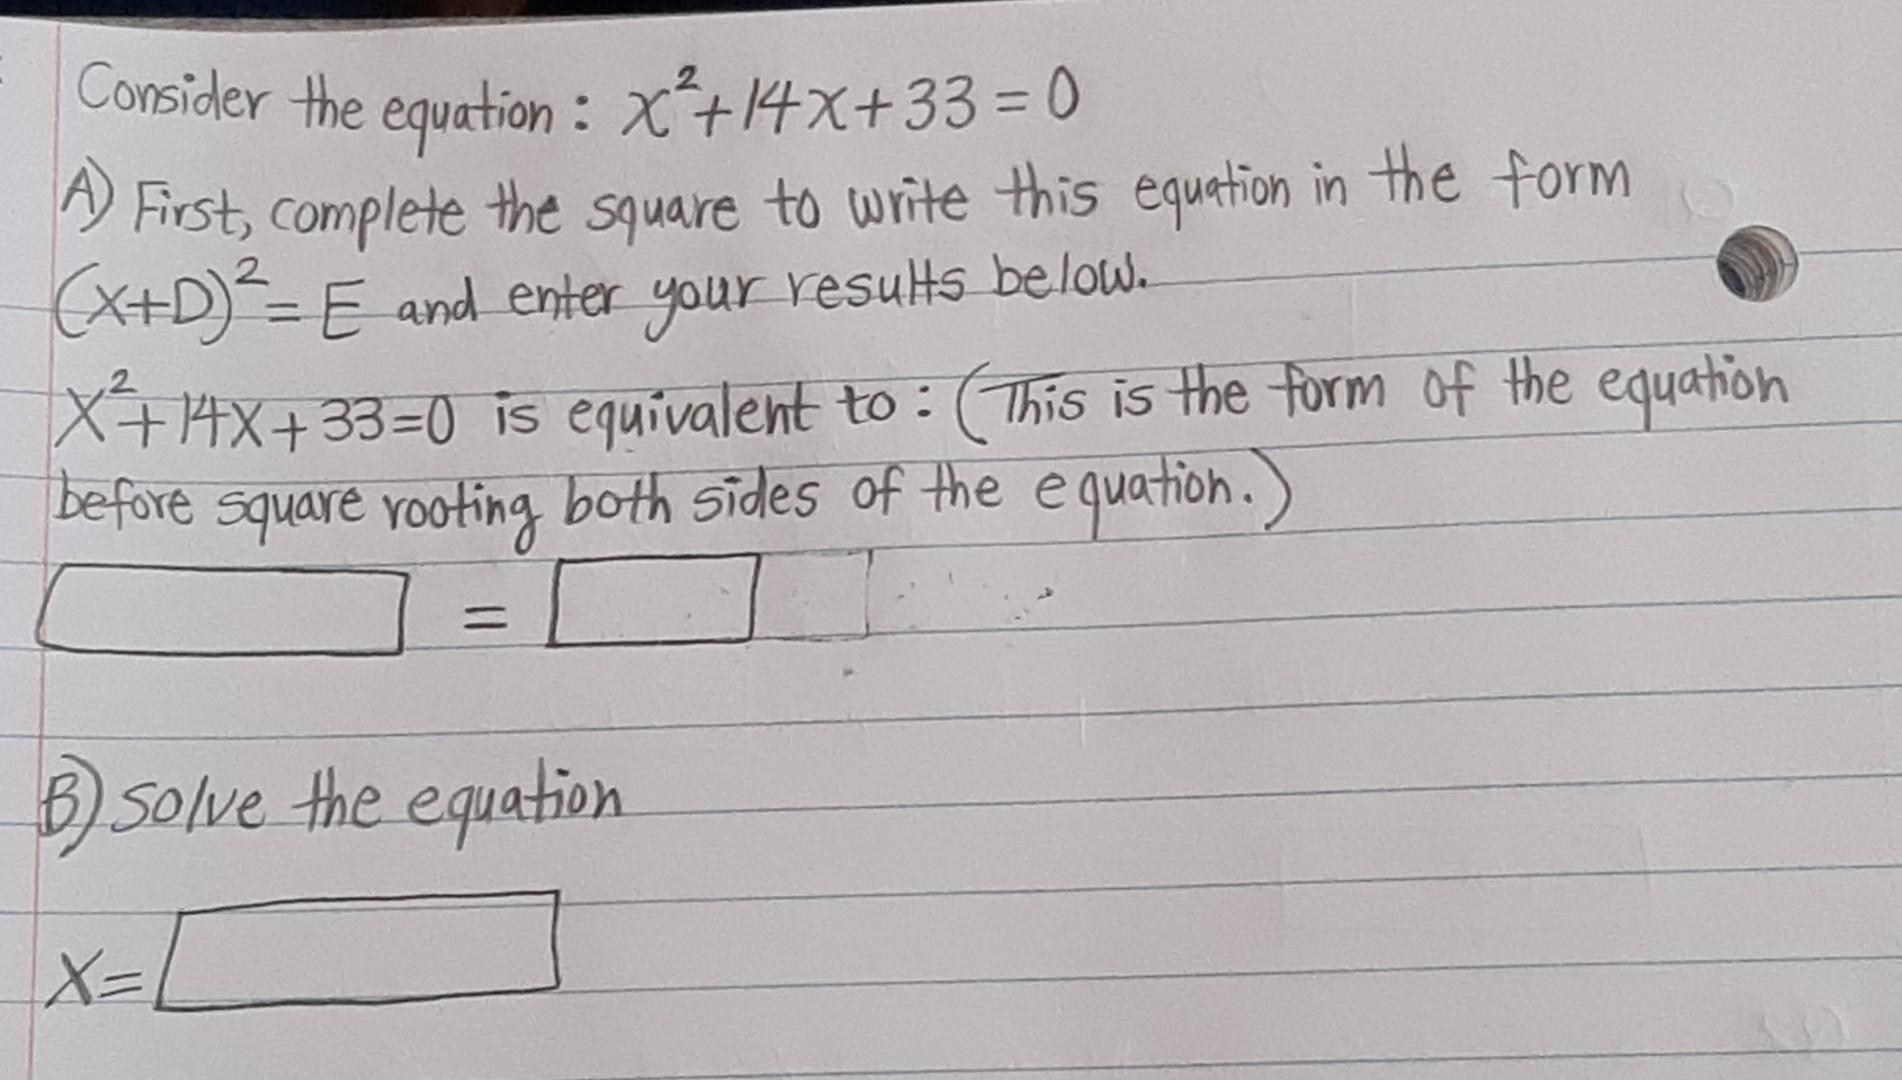 Consider the equation: x²+14x+33=0
A) First, complete the square to write this equation in the form
(x+D)²=E and enter your results below.
x²+14x+33=0 is equivalent to: (This is the form of the equation
before square rooting both sides of the equation.)
=
B) solve the equation
x=